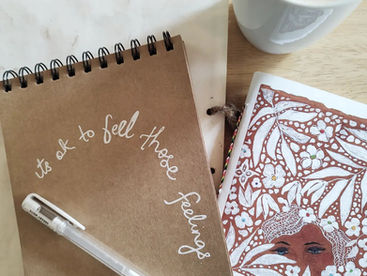 its ok to feel those feelings